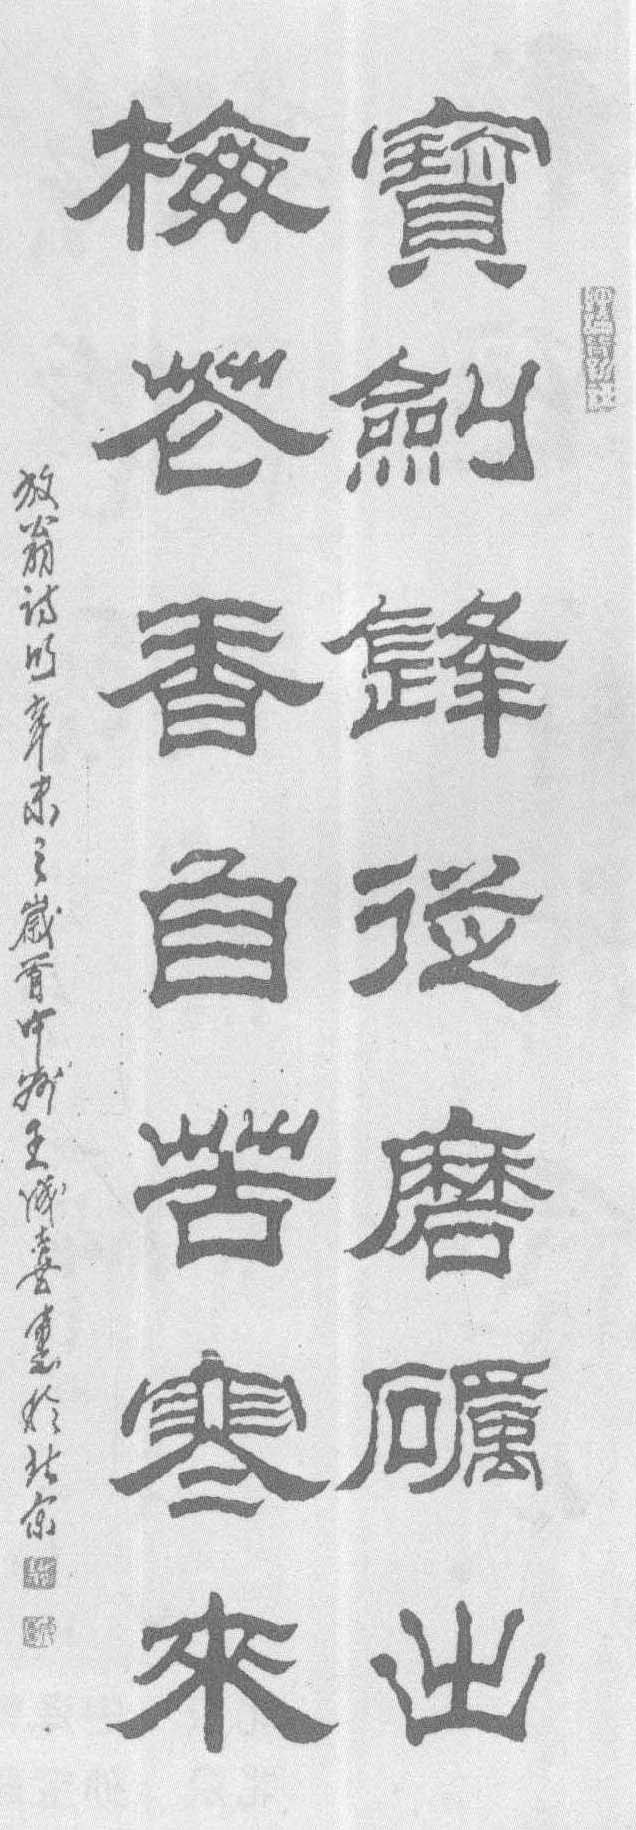 寶劍鋒從磨礪出
梅花香自苦寒來
放翁詩句辛未之歲首中州王成喜書於北京